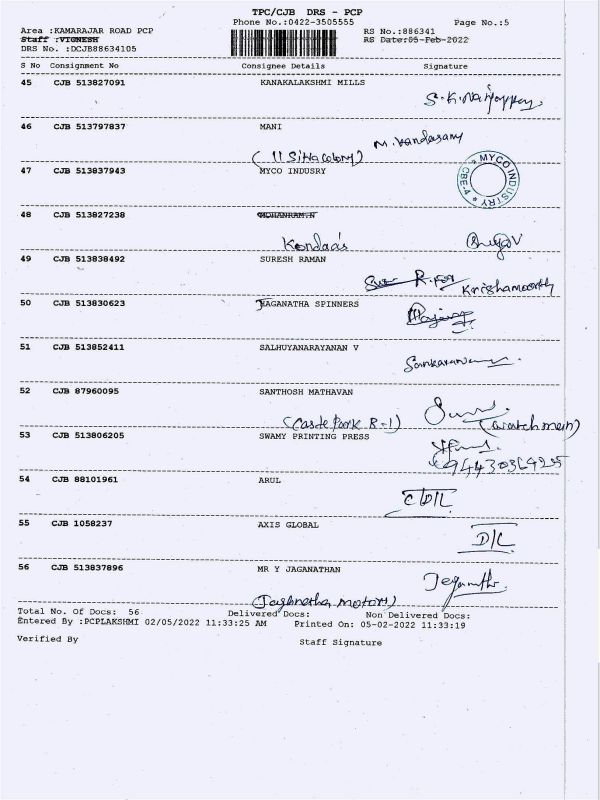 TPC/CJB DRS - PCP
Phone No.:0422-3505555 Page No.:5
Area :KAMARAJAR ROAD PCP RS No.:886341
Staff :VIGNESH RS Date:05-Feb-2022
DRS No. :DCJB88634105
S No Consignment No Consignee Details Signature
45 CJB 513827091 KANAKALAKSHMI MILLS
46 CJB 513797837 MANI
M. Kandasamy
(11 Sitha colony)
47 CJB 513837943 MYCO INDUSRY
MYCO INDUSTRY * CBE-4 *
48 CJB 513827238 MOHANRAM.N
Kondaas
49 CJB 513838492 SURESH RAMAN
Krishamoorthy
50 CJB 513830623 NAGANATHA SPINNERS
51 CJB 513852411 SALHUYANARAYANAN V
52 CJB 87960095 SANTHOSH MATHAVAN
(Castle Park B-1) (watch man)
53 CJB 513806205 SWAMY PRINTING PRESS
54 CJB 88101961 ARUL
55 CJB 1058237 AXIS GLOBAL
D/C
56 CJB 513837896 MR Y JAGANATHAN
(Jaganatha motors)
Total No. Of Docs: 56 Delivered Docs: Non Delivered Docs:
Entered By :PCPLAKSHMI 02/05/2022 11:33:25 AM Printed On: 05-02-2022 11:33:19
Verified By Staff Signature